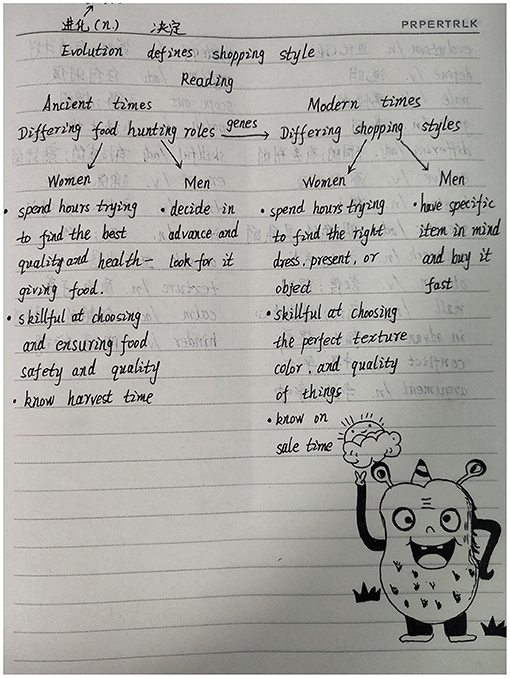 进化(n.) 决定
PRPERTRLK
Evolution defines shopping style
Reading
Ancient times
Modern times
Differing food hunting roles genes Differing shopping styles
Women
Men
Women
Men
• spend hours trying
to find the best
quality and health-
giving food.
• skillful at choosing
and ensuring food
safety and quality
• know harvest time
• decide in
advance and
look for it
• spend hours trying
to find the right
dress, present, or
object
• skillful at choosing
the perfect texture
color, and quality
of things
• know on
sale time
• have specific
item in mind
and buy it
fast